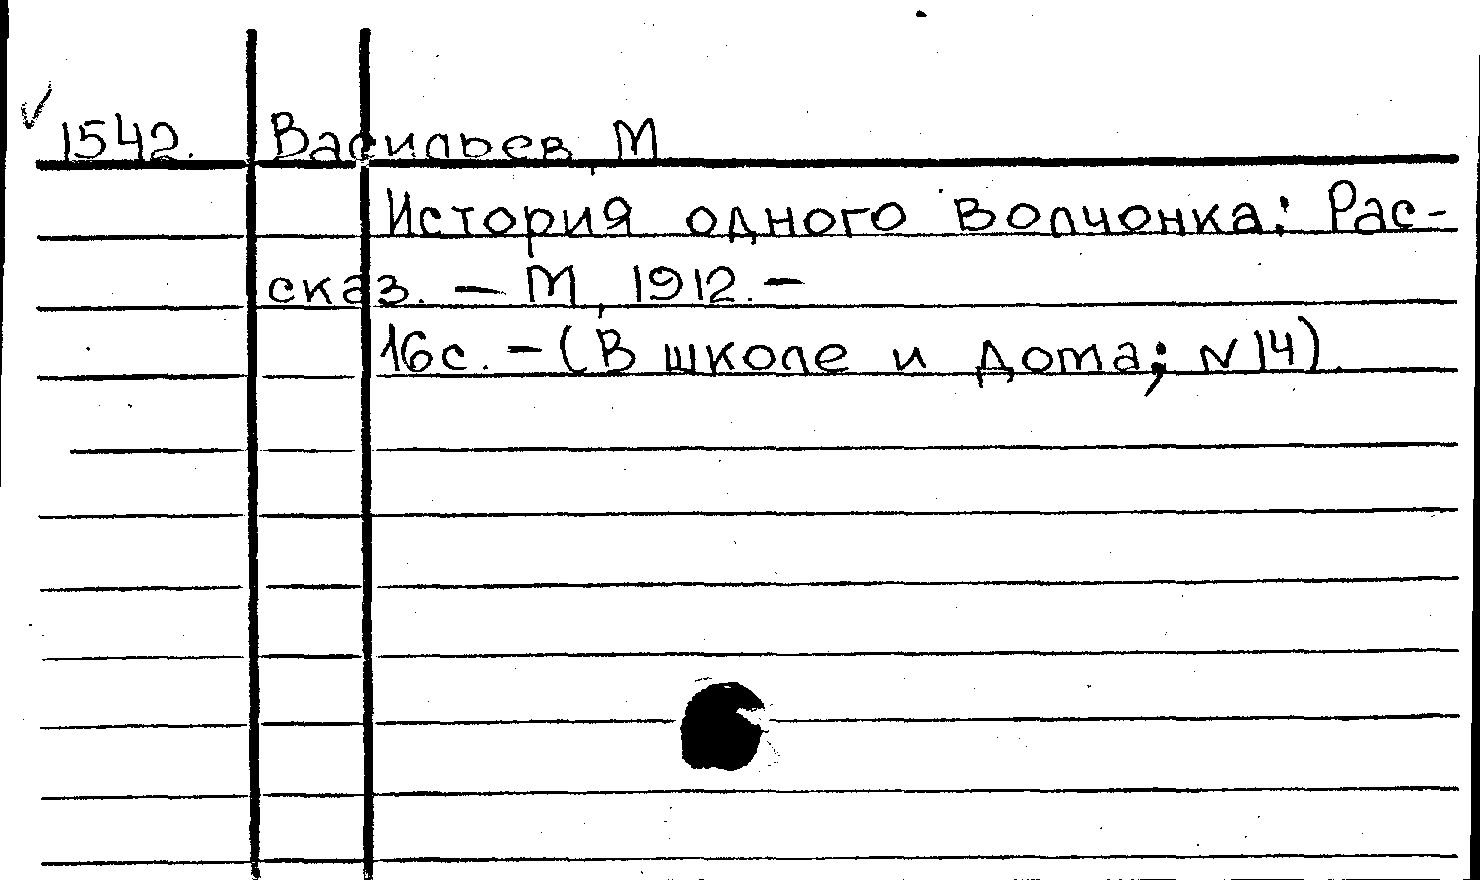 ✓ 1542. Васильев, М
История одного волчонка: Рас-
сказ. — М, 1912. —
16с. — (В школе и дома; N 14).